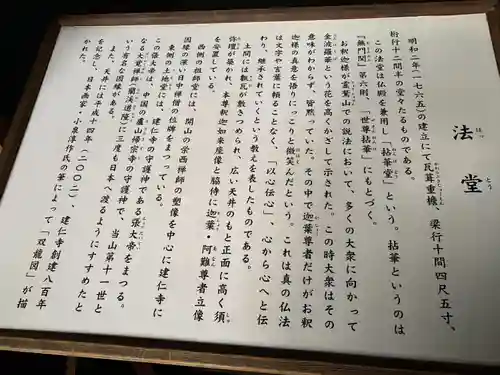 法堂
はっとう
明和二年(一七六五)の建立にて瓦葺重擔、梁行十間四尺五寸、
桁行十二間半の堂々たるものである。
この法堂は仏殿を兼用し「拈華堂」という。拈華というのは
『無門関』第六則、「世尊拈華」にもとづく。
お釈迦様が霊鷲山での説法において、多くの大衆に向かって
金波羅華という花を高くかざして示された。この時大衆はその
意味がわからず、皆黙っていた。その中で迦葉尊者だけがお釈
迦様の真意を悟りにっこりと微笑んだという。これは真の仏法
は文字や言葉に頼ることなく、「以心伝心」、心から心へと伝
わり、継承されていくという教えを表したものである。
土間には敷瓦が敷きつめられ、広い天井のもと正面に高く須
弥壇が築かれ、本尊釈迦如来座像と脇侍に迦葉・阿難尊者立像
を安置している。
西側の祖師堂には、開山の栄西禅師の塑像を中心に建仁寺に
因縁の深い日中禅僧の位牌をまつっている。
東側の土地堂には、建仁寺の守護神である張大帝をまつる。
この張大帝は、中国の廬山帰宗寺の守護神で、当山第十一世と
なる大覚禅師(蘭渓道隆)に三度も日本へ渡るようにすすめたと
いう有名な因縁がある。
また、天井には平成十四年(二〇〇二)、建仁寺創建八百年
を記念し、日本画家・小泉淳作氏の筆によって「双龍図」が描
かれた。